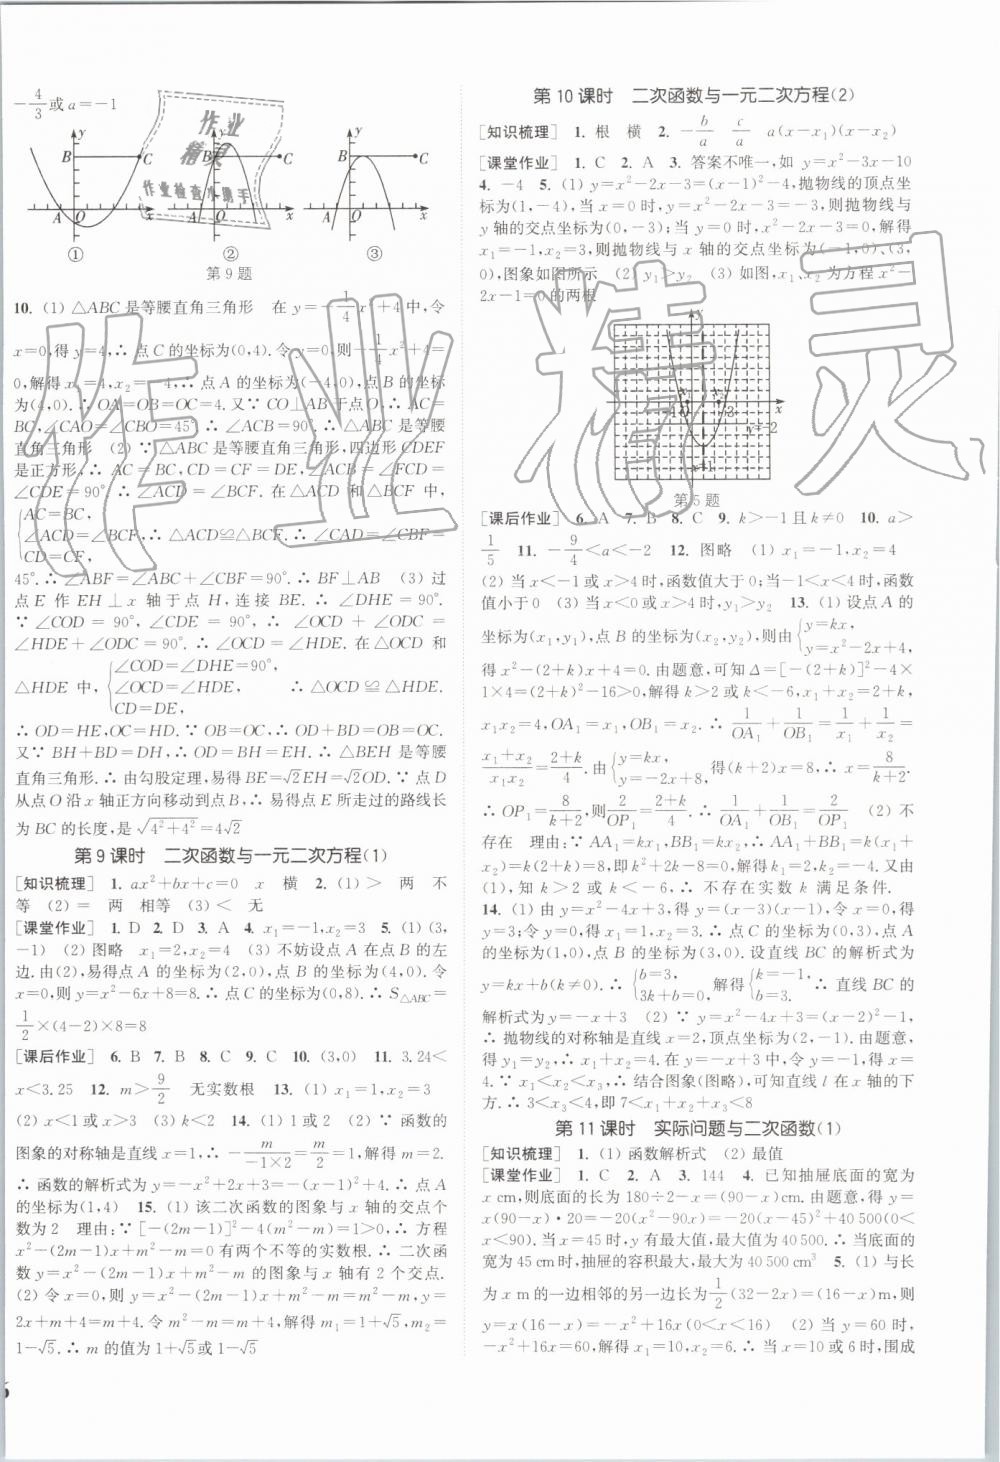 -4/3或a=-1
y B C A O x ①
y B C A O x ②
y B C A O x ③
第9题
10. (1) △ABC是等腰直角三角形 在y=-1/4x²+4中,令
x=0,得y=4,∴点C的坐标为(0,4).令y=0,则-1/4x²+4=
0,解得x₁=4,x₂=-4,∴点A的坐标为(-4,0),点B的坐标
为(4,0).∴OA=OB=OC=4.又∵CO⊥AB于点O,∴AC=
BC,∠CAO=∠CBO=45°.∴∠ACB=90°.∴△ABC是等腰
直角三角形 (2) ∵△ABC是等腰直角三角形,四边形CDEF
是正方形,∴AC=BC,CD=CF=DE,∠ACB=∠FCD=
∠CDE=90°.∴∠ACD=∠BCF.在△ACD和△BCF中,
{AC=BC,
∠ACD=∠BCF,∴△ACD≌△BCF.∴∠CAD=∠CBF=
CD=CF,
45°.∴∠ABF=∠ABC+∠CBF=90°.∴BF⊥AB (3) 过
点E作EH⊥x轴于点H,连接BE.∴∠DHE=90°.
∵∠COD=90°,∠CDE=90°,∴∠OCD+∠ODC=
∠HDE+∠ODC=90°.∴∠OCD=∠HDE.在△OCD和
△HDE中,{∠COD=∠DHE=90°, ∠OCD=∠HDE, CD=DE, ∴△OCD≌△HDE.
∴OD=HE,OC=HD.∵OB=OC,∴OD+BD=OB=OC.
又∵BH+BD=DH,∴OD=BH=EH.∴△BEH是等腰
直角三角形.∴由勾股定理,易得BE=√2EH=√2OD.∵点D
从点O沿x轴正方向移动到点B,∴易得点E所走过的路线长
为BC的长度,是√(4²+4²)=4√2
第9课时 二次函数与一元二次方程(1)
[知识梳理] 1. ax²+bx+c=0 x 横 2. (1) > 两 不
等 (2) = 两 相等 (3) < 无
[课堂作业] 1. D 2. D 3. A 4. x₁=-1,x₂=3 5. (1) (3,
-1) (2) 图略 x₁=2,x₂=4 (3) 不妨设点A在点B的左
边.由(2),易得点A的坐标为(2,0),点B的坐标为(4,0).令
x=0,则y=x²-6x+8=8.∴点C的坐标为(0,8).∴S△ABC=
1/2×(4-2)×8=8
[课后作业] 6. B 7. B 8. C 9. C 10. (3,0) 11. 3.24<
x<3.25 12. m>9/2 无实数根 13. (1) x₁=1,x₂=3
(2) x<1或x>3 (3) k<2 14. (1) 1或2 (2) ∵函数的
图象的对称轴是直线x=1,∴-m/(-1×2)=m/2=1,解得m=2.
∴函数的解析式为y=-x²+2x+3=-(x-1)²+4.∴点A
的坐标为(1,4) 15. (1) 该二次函数的图象与x轴的交点个
数为2 理由:∵[-(2m-1)]²-4(m²-m)=1>0,∴方程
x²-(2m-1)x+m²-m=0有两个不等的实数根.∴二次函
数y=x²-(2m-1)x+m²-m的图象与x轴有2个交点.
(2) 令x=0,则y=x²-(2m-1)x+m²-m=m²-m,y=
2x+m+4=m+4.令m²-m=m+4,解得m₁=1+√5,m₂=
1-√5.∴m的值为1+√5或1-√5
第10课时 二次函数与一元二次方程(2)
[知识梳理] 1. 根 横 2. -b/a c/a a(x-x₁)(x-x₂)
[课堂作业] 1. C 2. A 3. 答案不唯一,如y=x²-3x-10
4. -4 5. (1) y=x²-2x-3=(x-1)²-4,抛物线的顶点坐
标为(1,-4),当x=0时,y=x²-2x-3=-3,则抛物线与
y轴的交点坐标为(0,-3);当y=0时,x²-2x-3=0,解得
x₁=-1,x₂=3,则抛物线与x轴的交点坐标为(-1,0)、(3,
0),图象如图所示 (2) y₁>y₂ (3) 如图,x₁、x₂为方程x²-
2x-1=0的两根
y x₁ x₂ -1 O 3 x y=-2 x=1
第5题
[课后作业] 6. A 7. B 8. C 9. k>-1且k≠0 10. a>
1/5 11. -9/4<a<-2 12. 图略 (1) x₁=-1,x₂=4
(2) 当x<-1或x>4时,函数值大于0;当-1<x<4时,函数
值小于0 (3) 当x<0或x>4时,y₁>y₂ 13. (1) 设点A的
坐标为(x₁,y₁),点B的坐标为(x₂,y₂),则由{y=kx, y=x²-2x+4,
得x²-(2+k)x+4=0.由题意,可知Δ=[-(2+k)]²-4×
1×4=(2+k)²-16>0,解得k>2或k<-6,x₁+x₂=2+k,
x₁x₂=4,OA₁=x₁,OB₁=x₂.∴1/OA₁+1/OB₁=1/x₁+1/x₂=
(x₁+x₂)/(x₁x₂)=(2+k)/4.由{y=kx, y=-2x+8,得(k+2)x=8.∴x=8/(k+2).
∴OP₁=8/(k+2),则2/OP₁=(2+k)/4.∴1/OA₁+1/OB₁=2/OP₁ (2) 不
存在 理由:∵AA₁=kx₁,BB₁=kx₂,∴AA₁+BB₁=k(x₁+
x₂)=k(2+k)=8,即k²+2k-8=0,解得k₁=2,k₂=-4.又由
(1),知k>2或k<-6,∴不存在实数k满足条件.
14. (1) 由y=x²-4x+3,得y=(x-3)(x-1),令x=0,得
y=3;令y=0,得x₁=1,x₂=3.∴点C的坐标为(0,3),点A
的坐标为(1,0),点B的坐标为(3,0).设直线BC的解析式为
y=kx+b(k≠0).∴{b=3, 3k+b=0,解得{k=-1, b=3.∴直线BC的
解析式为y=-x+3 (2) ∵y=x²-4x+3=(x-2)²-1,
∴抛物线的对称轴是直线x=2,顶点坐标为(2,-1).由题意,
得y₁=y₂,∴x₁+x₂=4.在y=-x+3中,令y=-1,得x=
4.∵x₁<x₂<x₃,∴结合图象(图略),可知直线l在x轴的下
方.∴3<x₃<4,即7<x₁+x₂+x₃<8
第11课时 实际问题与二次函数(1)
[知识梳理] 1. (1) 函数解析式 (2) 最值
[课堂作业] 1. C 2. A 3. 144 4. 已知抽屉底面的宽为
x cm,则底面的长为180÷2-x=(90-x)cm.由题意,得y=
x(90-x)·20=-20(x²-90x)=-20(x-45)²+40 500(0<
x<90).当x=45时,y有最大值,最大值为40 500.∴当底面的
宽为45 cm时,抽屉的容积最大,最大为40 500 cm³ 5. (1) 与长
为x m的一边相邻的另一边长为1/2(32-2x)=(16-x)m,则
y=x(16-x)=-x²+16x(0<x<16) (2) 当y=60时,
-x²+16x=60,解得x₁=10,x₂=6.∴当x=10或6时,围成
作业精灵
作业检查小助手
作业精灵